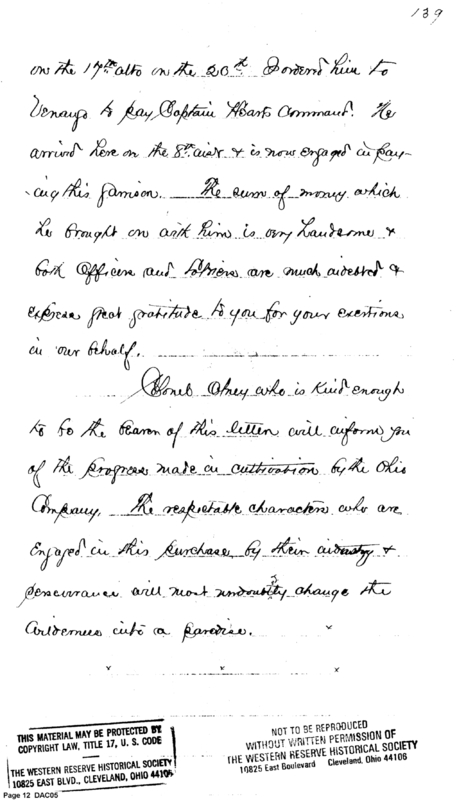 139
on the 17th ulto on the 20th I orderd him to
Venango to pay Captain Hearts Command. He
arrivd here on the 8th inst & is now engaged in pay-
-ing this Garrison. The sum of money which
he brought on with him is very handsome &
both Officers and Soldiers are much indebted &
express great gratitude to you for your exertions
in our behalf.
Colonel Olney who is kind enough
to be the bearer of this letter will inform you
of the progress made in cultivation by the Ohio
Company. The respectable characters who are
engaged in this purchase by their industry &
perseverance will most undoubtly change the
Wilderness into a paradise. x
x x x
THIS MATERIAL MAY BE PROTECTED BY
COPYRIGHT LAW, TITLE 17, U. S. CODE
THE WESTERN RESERVE HISTORICAL SOCIETY
10825 EAST BLVD., CLEVELAND, OHIO 44106
NOT TO BE REPRODUCED
WITHOUT WRITTEN PERMISSION OF
THE WESTERN RESERVE HISTORICAL SOCIETY
10825 East Boulevard Cleveland, Ohio 44106
Page 12 DAC05